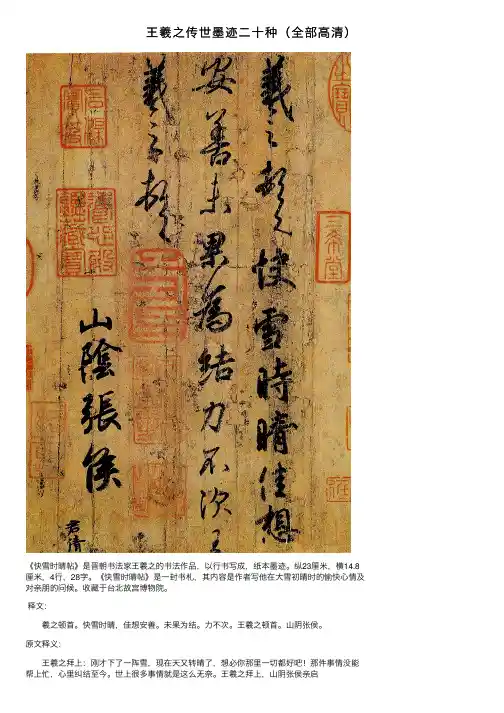 王羲之传世墨迹二十种（全部高清）
羲之頓首快雪時晴佳想
安善未果為結力不次王
羲之頓首
山陰張侯
君倩
三希堂
《快雪时晴帖》是晋朝书法家王羲之的书法作品，以行书写成，纸本墨迹。纵23厘米，横14.8
厘米，4行，28字。《快雪时晴帖》是一封书札，其内容是作者写他在大雪初晴时的愉快心情及
对亲朋的问候。收藏于台北故宫博物院。
释文：
羲之顿首。快雪时晴，佳想安善。未果为结。力不次。王羲之顿首。山阴张侯。
原文释义：
王羲之拜上：刚才下了一阵雪，现在天又转晴了，想必你那里一切都好吧！那件事情没能
帮上忙，心里纠结至今。世上很多事情就是这么无奈。王羲之拜上，山阴张侯亲启